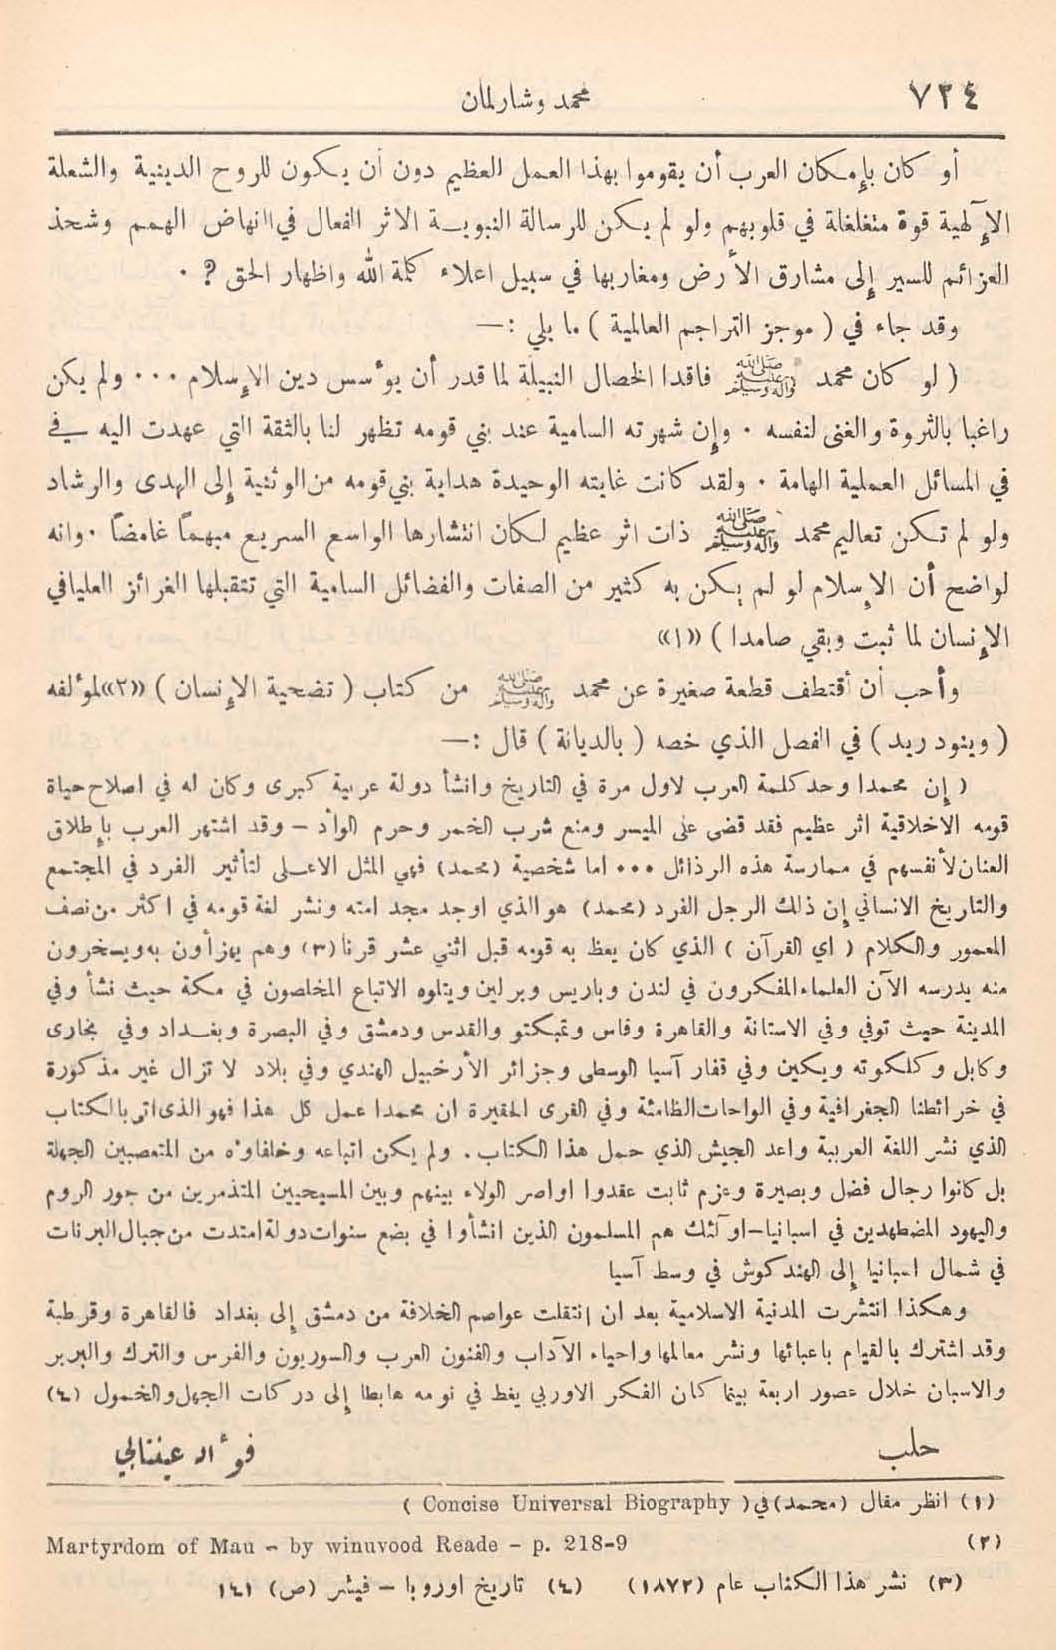 ٧٢٤ محمد وشارلمان
أو كان بإمكان العرب أن يقوموا بهذا العمل العظيم دون أن يكون للروح الدينية والشعلة
الإلهية قوة متغلغلة في قلوبهم ولو لم يكن للرسالة النبوية الاثر الفعال في انهاض الهمم وشحذ
العزائم للسير إلى مشارق الأرض ومغاربها في سبيل اعلاء كلمة الله واظهار الحق ? .
وقد جاء في ( موجز التراجم العالمية ) ما يلي :—
( لو كان محمد صلى الله عليه وآله وسلم فاقدا الخصال النبيلة لما قدر أن يؤسس دين الإسلام ... ولم يكن
راغبا بالثروة والغنى لنفسه . وإن شهرته السامية عند بني قومه تظهر لنا بالثقة التي عهدت اليه في
في المسائل العملية الهامة . ولقد كانت غايته الوحيدة هداية بني قومه من الوثنية إلى الهدى والرشاد
ولو لم تكن تعاليم محمد صلى الله عليه وآله وسلم ذات اثر عظيم لكان انتشارها الواسع السريع مبهماً غامضاً . وانه
لواضح أن الإسلام لو لم يكن به كثير من الصفات والفضائل السامية التي تتقبلها الغرائز العليا في
الإنسان لما ثبت وبقي صامدا ) «١»
وأحب أن أقتطف قطعة صغيرة عن محمد صلى الله عليه وآله وسلم من كتاب ( تضحية الإنسان ) «٢» لمؤلفه
( وينود ريد ) في الفصل الذي خصه ( بالديانة ) قال :—
( إن محمدا وحد كلمة العرب لاول مرة في التاريخ وانشأ دولة عربية كبرى وكان له في اصلاح حياة
قومه الاخلاقية اثر عظيم فقد قضى على الميسر ومنع شرب الخمر وحرم الوأد – وقد اشتهر العرب بإطلاق
العنان لأنفسهم في ممارسة هذه الرذائل ... اما شخصية (محمد) فهي المثل الاعلى لتأثير الفرد في المجتمع
والتاريخ الانساني إن ذلك الرجل الفرد (محمد) هو الذي اوجد مجد امته ونشر لغة قومه في اكثر من نصف
المعمور والكلام ( اي القرآن ) الذي كان يعظ به قومه قبل اثني عشر قرنا (٣) وهم يهزأون به ويسخرون
منه يدرسه الآن العلماء المفكرون في لندن وباريس وبرلين ويتلوه الاتباع المخلصون في مكة حيث نشأ وفي
المدينة حيث توفي وفي الاستانة والقاهرة وفاس وتمبكتو والقدس ودمشق وفي البصرة وبغداد وفي بخارى
وكابل وكلكوته وبكين وفي قفار آسيا الوسطى وجزائر الأرخبيل الهندي وفي بلاد لا تزال غير مذكورة
في خرائطنا الجغرافية وفي الواحات الظامئة وفي القرى الحقيرة ان محمدا عمل كل هذا فهو الذي اتى بالكتاب
الذي نشر اللغة العربية واعد الجيش الذي حمل هذا الكتاب . ولم يكن اتباعه وخلفاؤه من المتعصبين الجهلة
بل كانوا رجال فضل وبصيرة وعزم ثابت عقدوا اواصر الولاء بينهم وبين المسيحيين المتذمرين من جور الروم
واليهود المضطهدين في اسبانيا–اولئك هم المسلمون الذين انشأوا في بضع سنوات دولة امتدت من جبال البرنات
في شمال اسبانيا إلى الهندكوش في وسط آسيا
وهكذا انتشرت المدنية الاسلامية بعد ان انتقلت عواصم الخلافة من دمشق إلى بغداد فالقاهرة وقرطبة
وقد اشترك بالقيام باعبائها ونشر معالمها واحياء الآداب والفنون العرب والسوريون والفرس والترك والبربر
والاسبان خلال عصور اربعة بينما كان الفكر الاوربي يغط في نومه هابطا إلى دركات الجهل والخمول (٤)
حلب فؤاد عينتابي
(١) انظر مقال (محمد) في ( Concise Universal Biography )
(٢) Martyrdom of Mau - by winuvood Reade - p. 218-9
(٣) نشر هذا الكتاب عام (١٨٧٢) (٤) تاريخ اوروبا – فيشر (ص) ١٤١